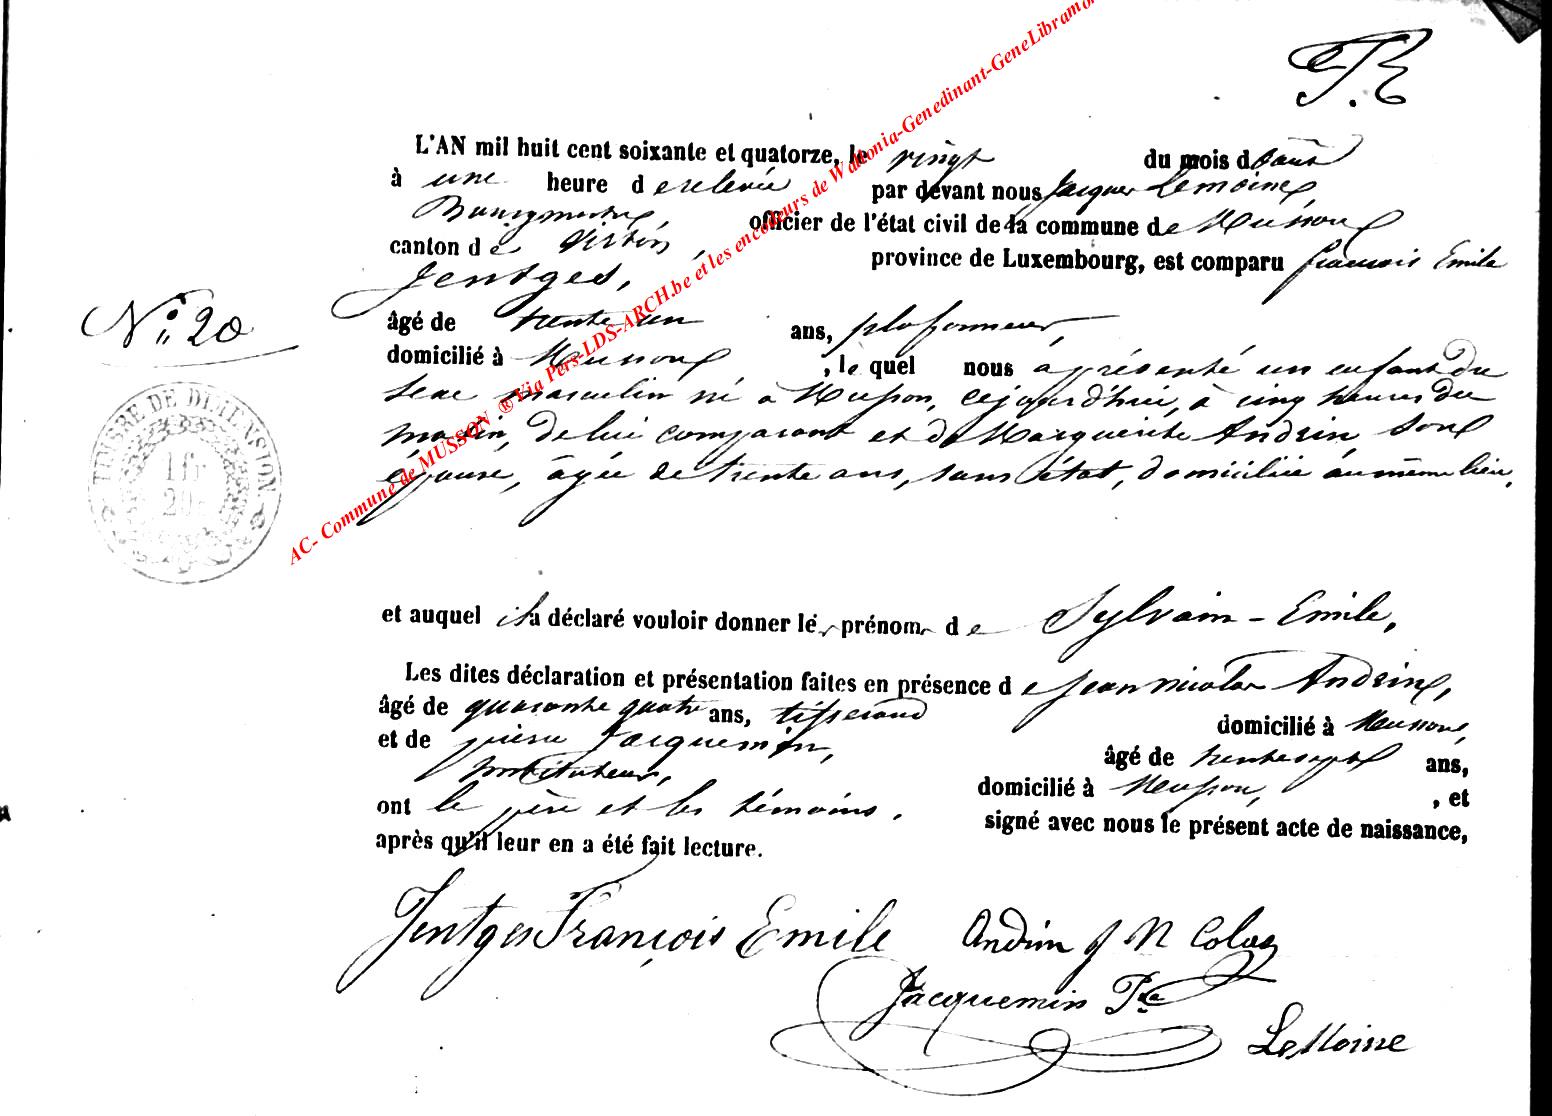 T.R
L'AN mil huit cent soixante et quatorze, le vingt du mois d'août
à une heure de relevée par devant nous Jacques Lemoine
Bourgmestre, officier de l'état civil de la commune de Musson
canton de Virton, province de Luxembourg, est comparu françois Emile
Jentges,
N° 20
âgé de trente un ans, plafonneur
domicilié à Musson, lequel nous a présenté un enfant du
sexe masculin né à Musson, cejourd'hui, à cinq heures du
matin, de lui comparant et de Marguerite Andrin son
épouse, âgée de trente ans, sans état, domiciliée au même lieu,
TIMBRE DE DIMENSION
1 fr
20 c
et auquel il a déclaré vouloir donner les prénoms de Sylvain - Emile,
Les dites déclaration et présentation faites en présence de Jean Nicolas Andrin,
âgé de quarante quatre ans, tisserand domicilié à Musson,
et de pierre Jacquemin, âgé de trente sept ans,
instituteur, domicilié à Musson, , et
ont le père et les témoins, signé avec nous le présent acte de naissance,
après qu'il leur en a été fait lecture.
Jentges François Emile Andrin J N Colas
Jacquemin Pre
LeMoine
AC- Commune de MUSSON ® Via Pers-LDS-ARCH.be et les encodeurs de Wallonia-Genedinant-GeneLibramo